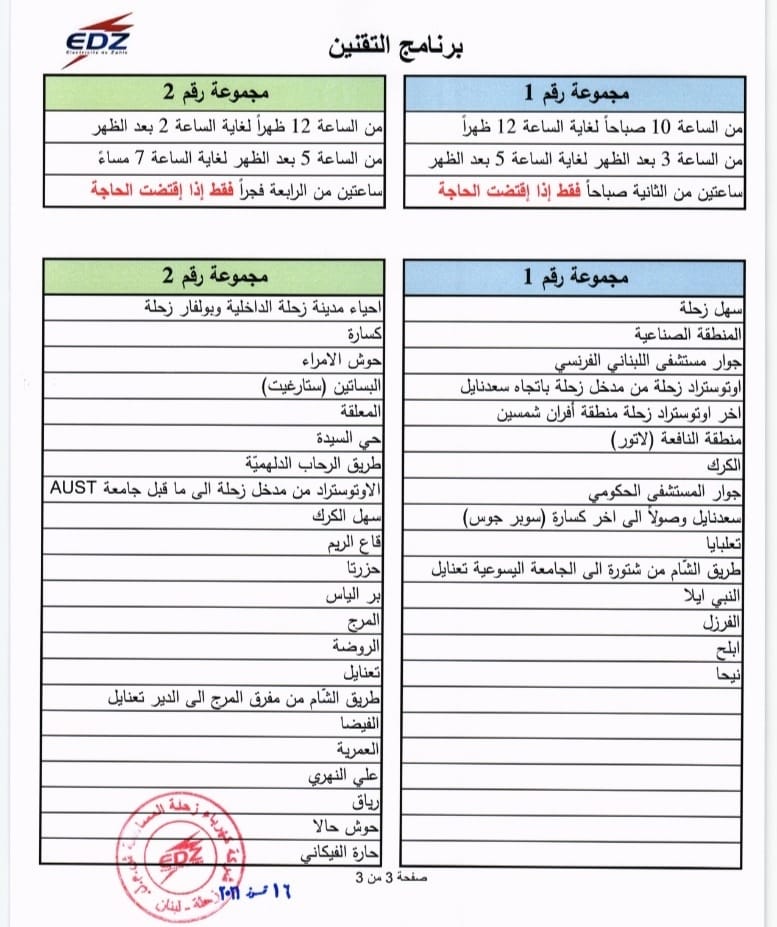 EDZ
Electricité de Zahlé
برنامج التقنين
مجموعة رقم 1
من الساعة 10 صباحاً لغاية الساعة 12 ظهراً
من الساعة 3 بعد الظهر لغاية الساعة 5 بعد الظهر
ساعتين من الثانية صباحاً فقط إذا إقتضت الحاجة
مجموعة رقم 2
من الساعة 12 ظهراً لغاية الساعة 2 بعد الظهر
من الساعة 5 بعد الظهر لغاية الساعة 7 مساءً
ساعتين من الرابعة فجراً فقط إذا إقتضت الحاجة
مجموعة رقم 1
سهل زحلة
المنطقة الصناعية
جوار مستشفى اللبناني الفرنسي
اوتوستراد زحلة من مدخل زحلة باتجاه سعدنايل
اخر اوتوستراد زحلة منطقة أفران شمسين
منطقة النافعة (لاتور)
الكرك
جوار المستشفى الحكومي
سعدنايل وصولاً الى اخر كسارة (سوبر جوس)
تعلبايا
طريق الشّام من شتورة الى الجامعة اليسوعية تعنايل
النبي ايلا
الفرزل
ابلح
نيحا
مجموعة رقم 2
احياء مدينة زحلة الداخلية وبولفار زحلة
كسارة
حوش الامراء
البساتين (ستارغيت)
المعلقة
حي السيدة
طريق الرحاب الدلهميّة
الاوتوستراد من مدخل زحلة الى ما قبل جامعة AUST
سهل الكرك
قاع الريم
حزرتا
بر الياس
المرج
الروضة
تعنايل
طريق الشّام من مفرق المرج الى الدير تعنايل
الفيضا
العمرية
علي النهري
رياق
حوش حالا
حارة الفيكاني
شركة كهرباء زحلة
EDZ
زحلة - لبنان
صفحة 3 من 3